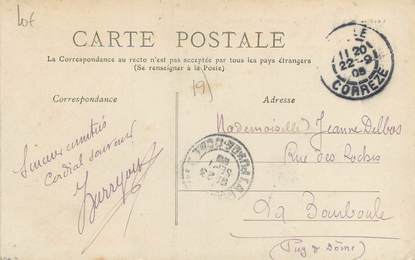 10f
CARTE POSTALE
La Correspondance au recto n'est pas acceptée par tous les pays étrangers
(Se renseigner à la Poste)
19)
Correspondance
Adresse
11 20
22-9
08
CORRÈZE
Mademoiselle Jeanne Delbos
Rue des Roches
La Bourboule
(Puy de Dôme)
Sincères amitiés
Cordial souvenir